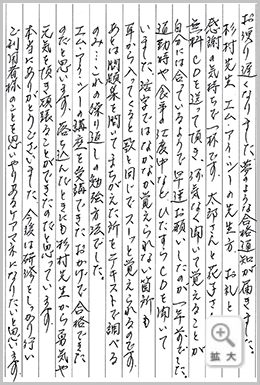 お便り遅くなりました。夢のような合格通知が届きました。
杉村先生 エム・アイ・シーの先生方、お礼と
感謝の気持ちで一杯です。太郎さんと花子さん
無料CDを送って頂き、何気なく聞いて覚えることが
自分には合っているようで早速お願いしたのが一年前でした。
通勤時や食事の仕度中など、ひたすらCDを聞いて
いました。活字ではなかなか覚えられない箇所も
耳から入ってくると歌と同じでスーッと覚えられるのです。
あとは問題集を開いてまちがえた所をテキストで調べる
のみ…これの繰り返しの勉強方法でした。
エム・アイ・シーの講座を受講できたおかげで合格できた
のだと思います。落ち込んだときにも杉村先生から勇気や
元気を頂き頑張ることができたのだと思っています。
本当にありがとうございました。今後は研修をしっかり行い
ご利用者様のことを思いやりあるケアマネになりたいと思います。
拡大